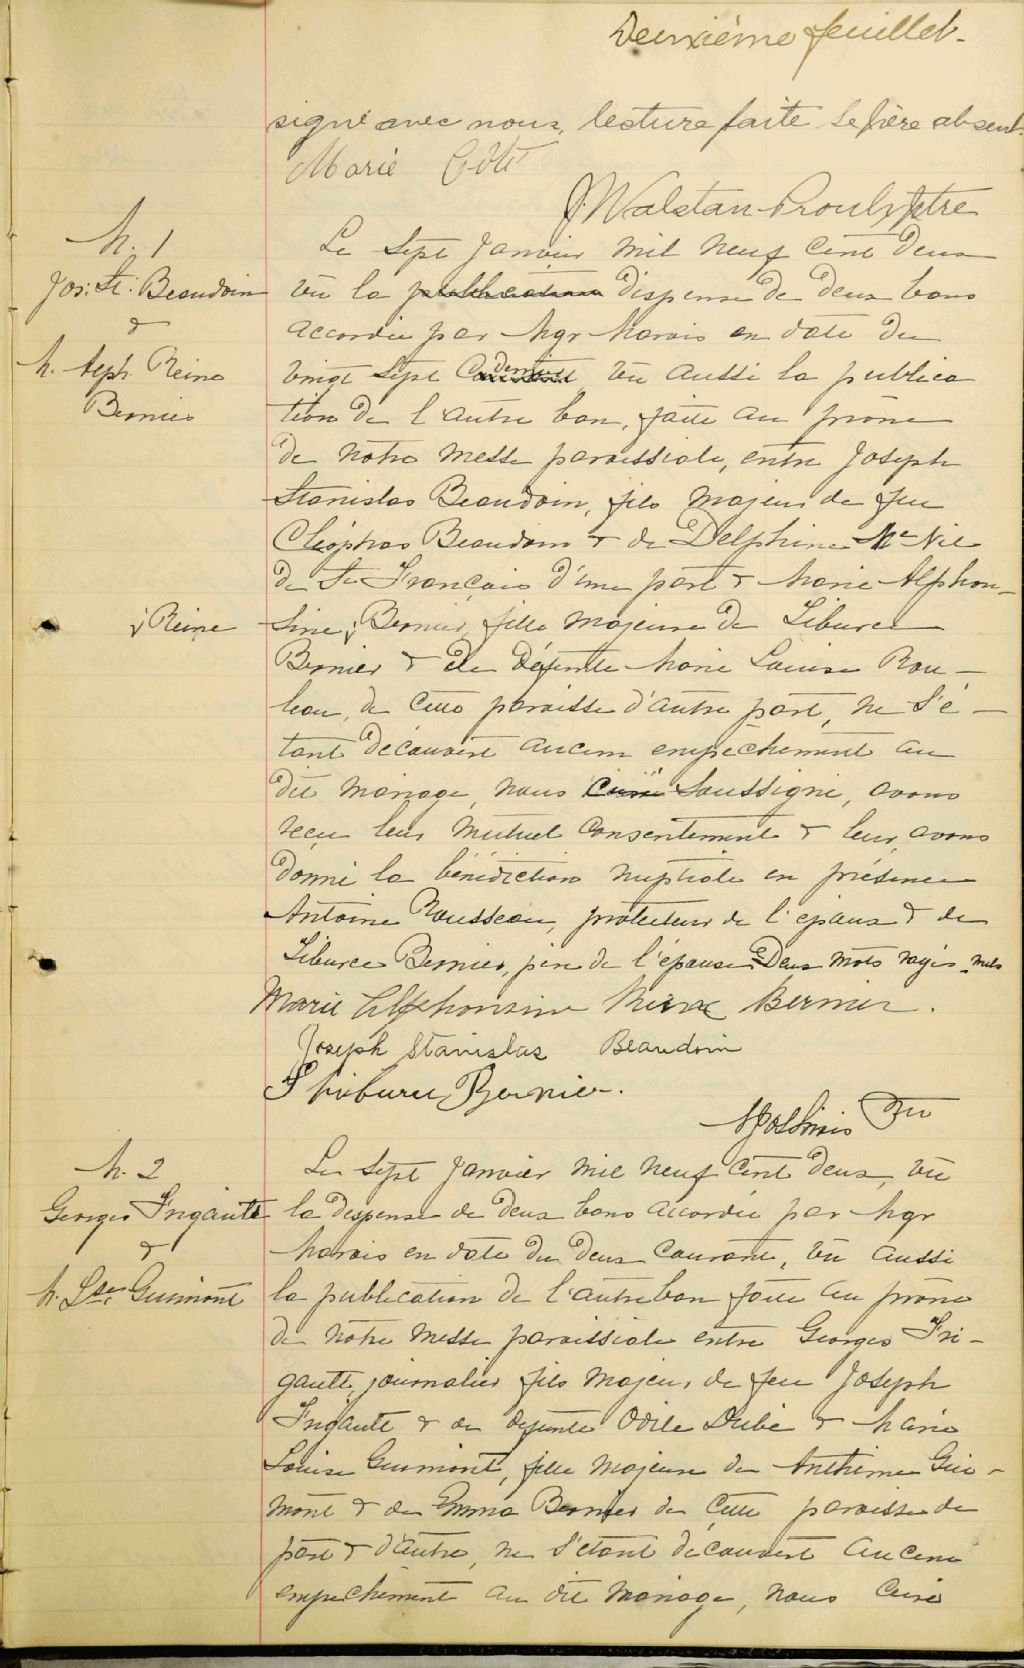 Deuxième feuillet.
signé avec nous, lecture faite le père absent.
Marie Côté
J. Walstan Proulx, Ptre
M. 1
Jos: St: Beaudoin
&
M. Alph. Reine
Bernier
Le sept janvier mil neuf cent deux
vu la publication dispense de deux bans
accordée par Mgr Marois en date du
vingt sept dernier vu aussi la publica
tion de l'autre ban, faite au prône
de notre messe paroissiale, entre Joseph
Stanislas Beaudoin, fils majeur de feu
Cléophas Beaudoin & de Delphine McNeil
de St François d'une part & Marie Alphon-
v Reine
sine, v Bernier, fille majeure de Tiburce
Bernier & de défunte Marie Louise Rou-
leau, de cette paroisse d'autre part, ne s'é-
tant découvert aucun empêchement au
dit mariage, nous Curé soussigné, avons
reçu leur mutuel consentement & leur avons
donné la bénédiction nuptiale en présence
Antoine Rousseau, protecteur de l'époux & de
Tiburce Bernier, père de l'épouse. Deux mots rayés nuls
Marie Alphonsine Reine Bernier.
Joseph Stanislas Beaudoin
Thiburce Bernier.
Ptre
M. 2
Georges Frigault
&
M. Lse Guimont
Le sept janvier mil neuf cent deux, vu
la dispense de deux bans accordée par Mgr
Marois en date du deux courant, vu aussi
la publication de l'autre ban faite au prône
de notre messe paroissiale entre Georges Fri-
gault, journalier fils majeur de feu Joseph
Frigault & de defunte Odile Dubé & Marie
Louise Guimont, fille majeure de Anthime Gui-
mont & de Emma Bernier de cette paroisse de
part & d'autre, ne s'étant découvert aucun
empêchement au dit mariage, nous Curé